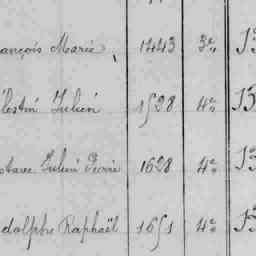 ançois Marie 1443 3e 13
élestin Julien 1528 4e 13
stave Julien Pierre 1628 4e 13
dolphe Raphaël 1651 4e 13